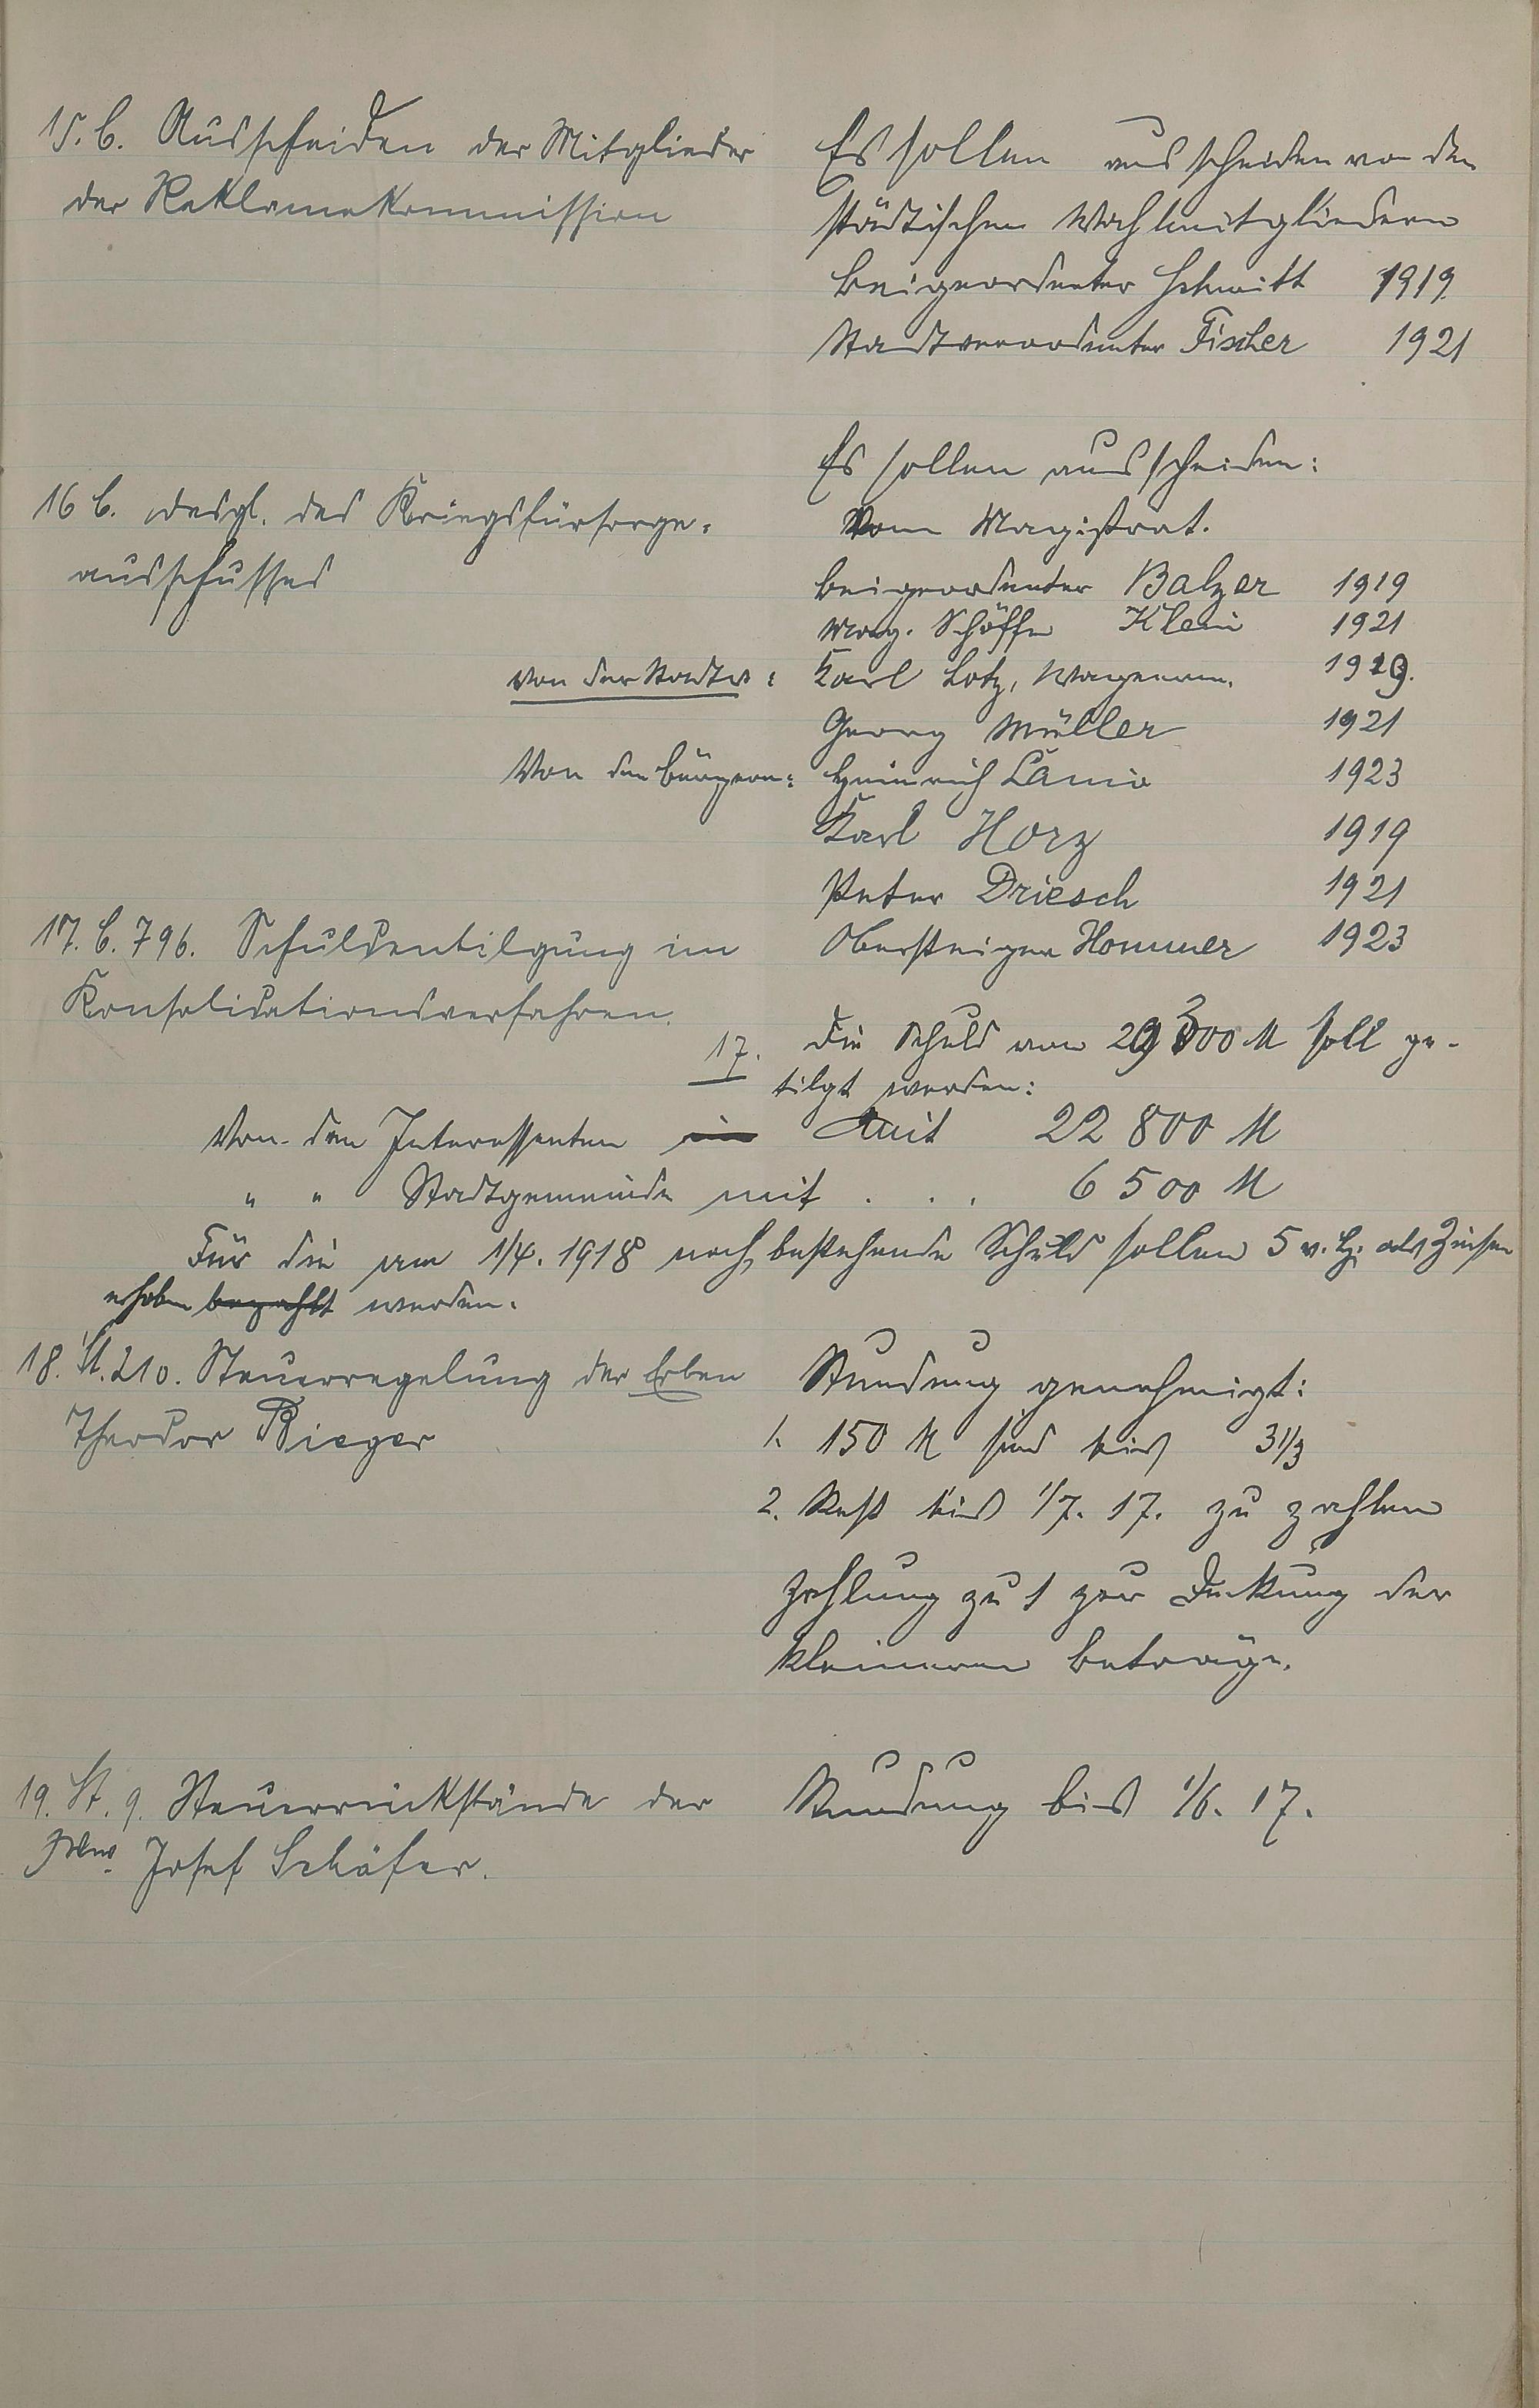 15. C. Ausscheiden der Mitglieder
der Reklamekommission
Es sollen ausscheiden von den
städtischen Wahlmitgliedern
Beigeordneter Schmitt 1919
Stadtverordneter Fischer 1921
16 C. desgl. des Kriegsfürsorge-
ausschusses
Es sollen ausscheiden:
Vom Magistrat.
Beigeordneter Balzer 1919
Mag. Schöffe Klein 1921
von der Stadtv: Karl Lotz, Wagener. 1919.
Georg Müller 1921
Von den Bürgern: Heinrich Lanio 1923
Karl Horz 1919
Peter Driesch 1921
Obersteiger Hommer 1923
17. C. 796. Schuldentilgung im
Konsolidationsverfahren.
17. Die Schuld von 29300 M soll ge-
tilgt werden:
Von den Interessenten mit 22 800 M
" " Stadtgemeinde mit . . . 6 500 M
Für die am 1/4. 1918 noch bestehende Schuld sollen 5 v. H. als Zinsen
erhoben bezahlt werden.
18. St. 210. Steuerregelung der Erben
Theodor Rieger
Stundung genehmigt:
1. 150 M sind bis 31/3
2. Rest bis 1/7. 17. zu zahlen
Zahlung zu 1 zur Deckung der
kleineren Beträge.
19. St. 9. Steuerrückstände der
Wwe. Josef Schäfer.
Stundung bis 1/6. 17.